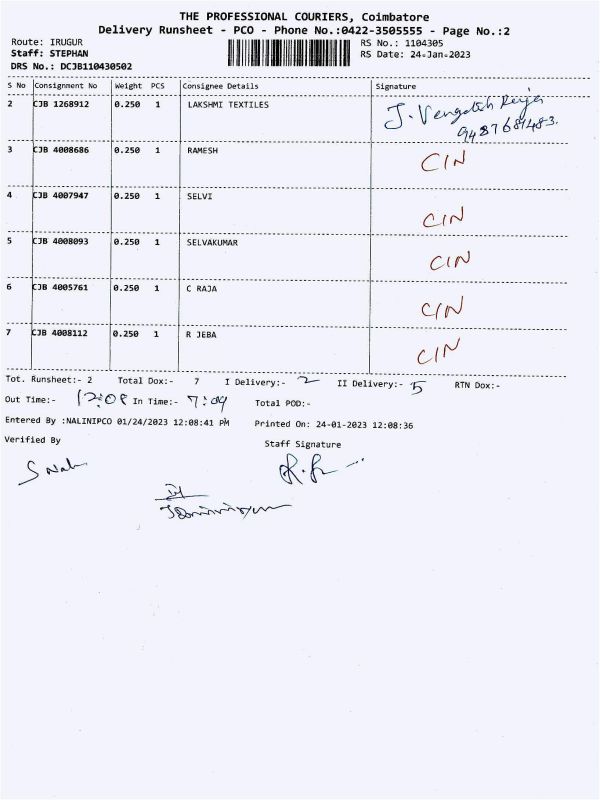 THE PROFESSIONAL COURIERS, Coimbatore
Delivery Runsheet - PCO - Phone No.:0422-3505555 - Page No.:2
Route: IRUGUR RS No.: 1104305
Staff: STEPHAN RS Date: 24-Jan-2023
DRS No.: DCJB110430502
S No Consignment No Weight PCS Consignee Details Signature
2 CJB 1268912 0.250 1 LAKSHMI TEXTILES J.
3 CJB 4008686 0.250 1 RAMESH CIN
4 CJB 4007947 0.250 1 SELVI CIN
5 CJB 4008093 0.250 1 SELVAKUMAR CIN
6 CJB 4005761 0.250 1 C RAJA CIN
7 CJB 4008112 0.250 1 R JEBA CIN
Tot. Runsheet:- 2 Total Dox:- 7 I Delivery:- 2 II Delivery:- 5 RTN Dox:-
Out Time:- 12:08 In Time:- 7:09 Total POD:-
Entered By :NALINIPCO 01/24/2023 12:08:41 PM Printed On: 24-01-2023 12:08:36
Verified By Staff Signature